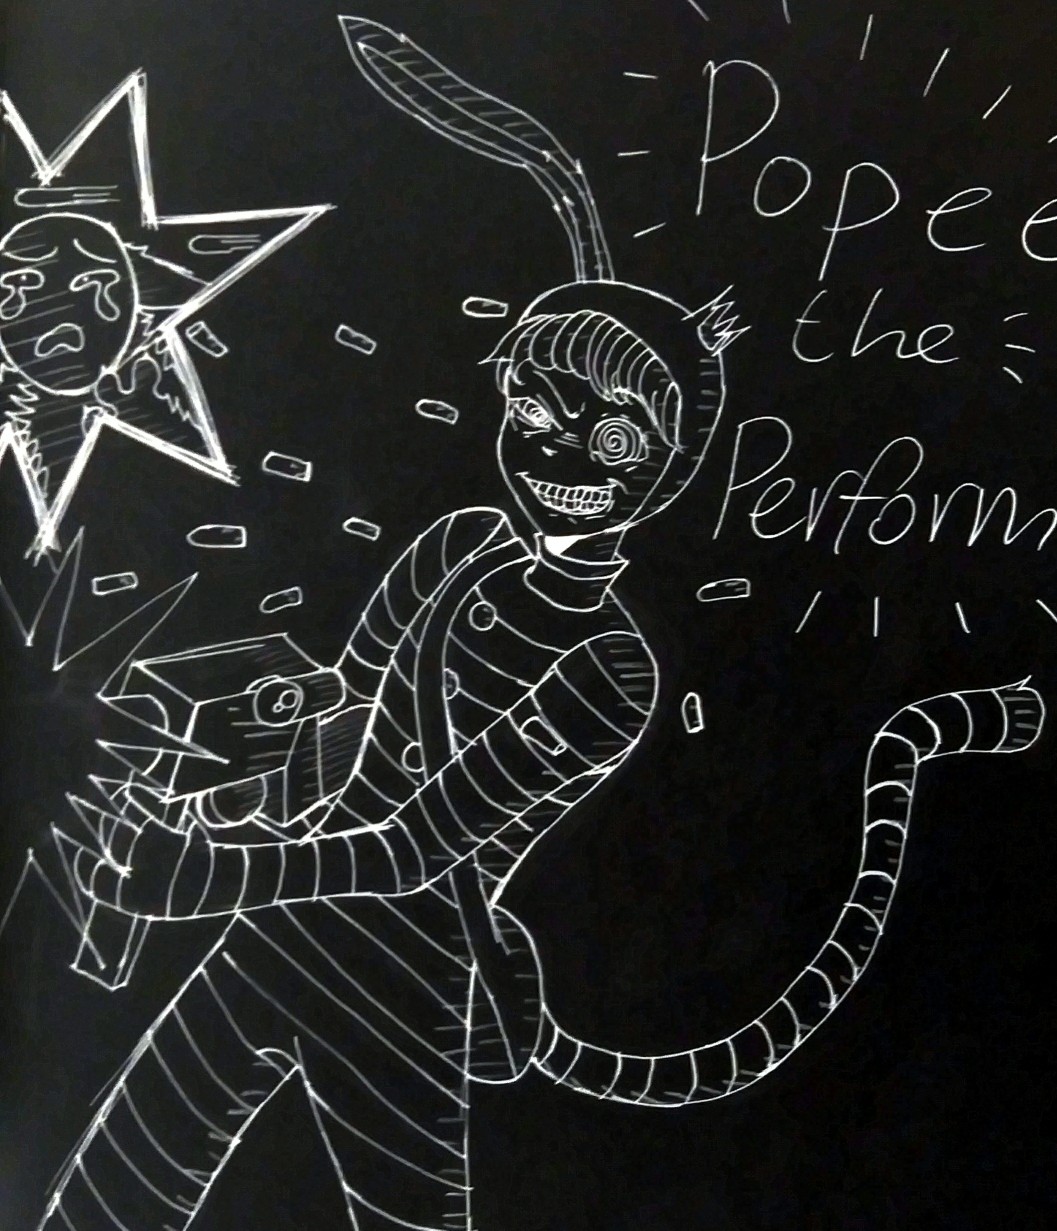 Popee
the
Perform